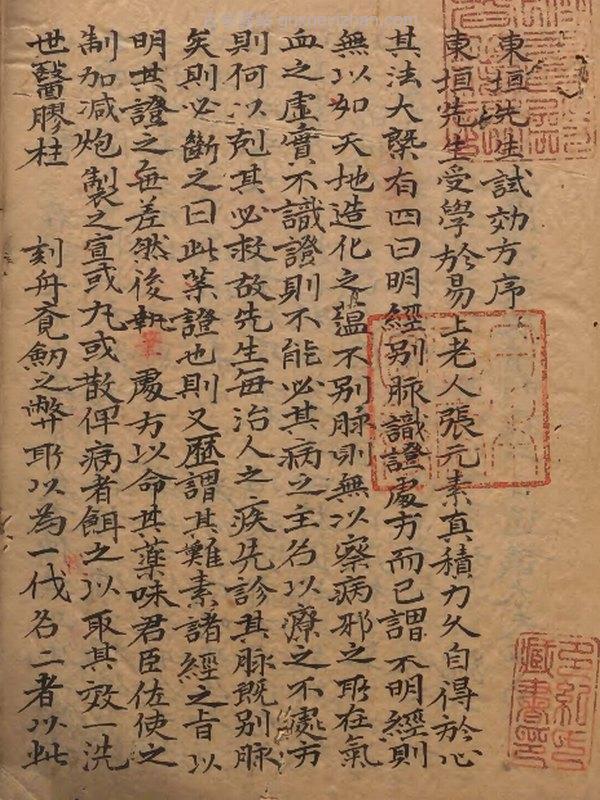 東垣先生試効方序
東垣先生受學於易上老人張元素真積力久自得於心
其法大槩有四曰明經別脉識證處方而已謂不明經則
無以知天地造化之蘊不別脉則無以察病邪之所在氣
血之虛實不識證則不能必其病之主名以療之不處方
則何以剋其必救故先生每治人之疾先診其脉既別脉
矣則必斷之曰此某證也則又歷謂其難素諸經之旨以
明其證之無差然後執筆處方以命其藥味君臣佐使之
制加减炮製之宜或丸或散俾病者餌之以取其效一洗
世醫膠柱 刻舟 劒之弊所以為一代名二者以此